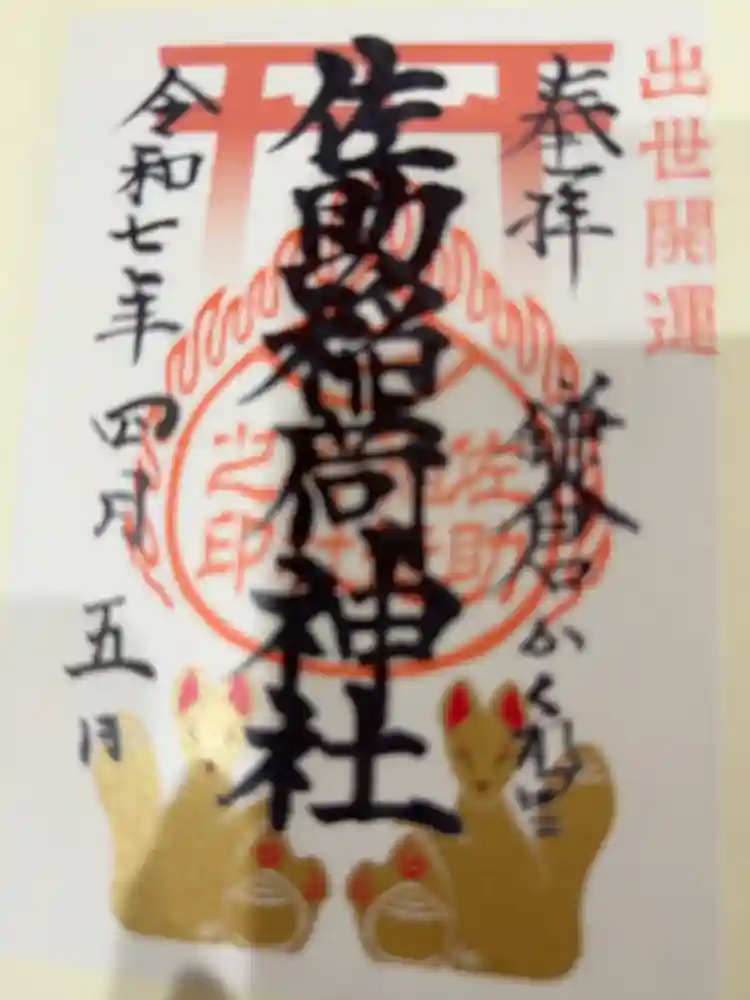 出世開運
奉拝 鎌倉かくれ里
佐助稲荷神社
佐助
之印
令和七年四月五日